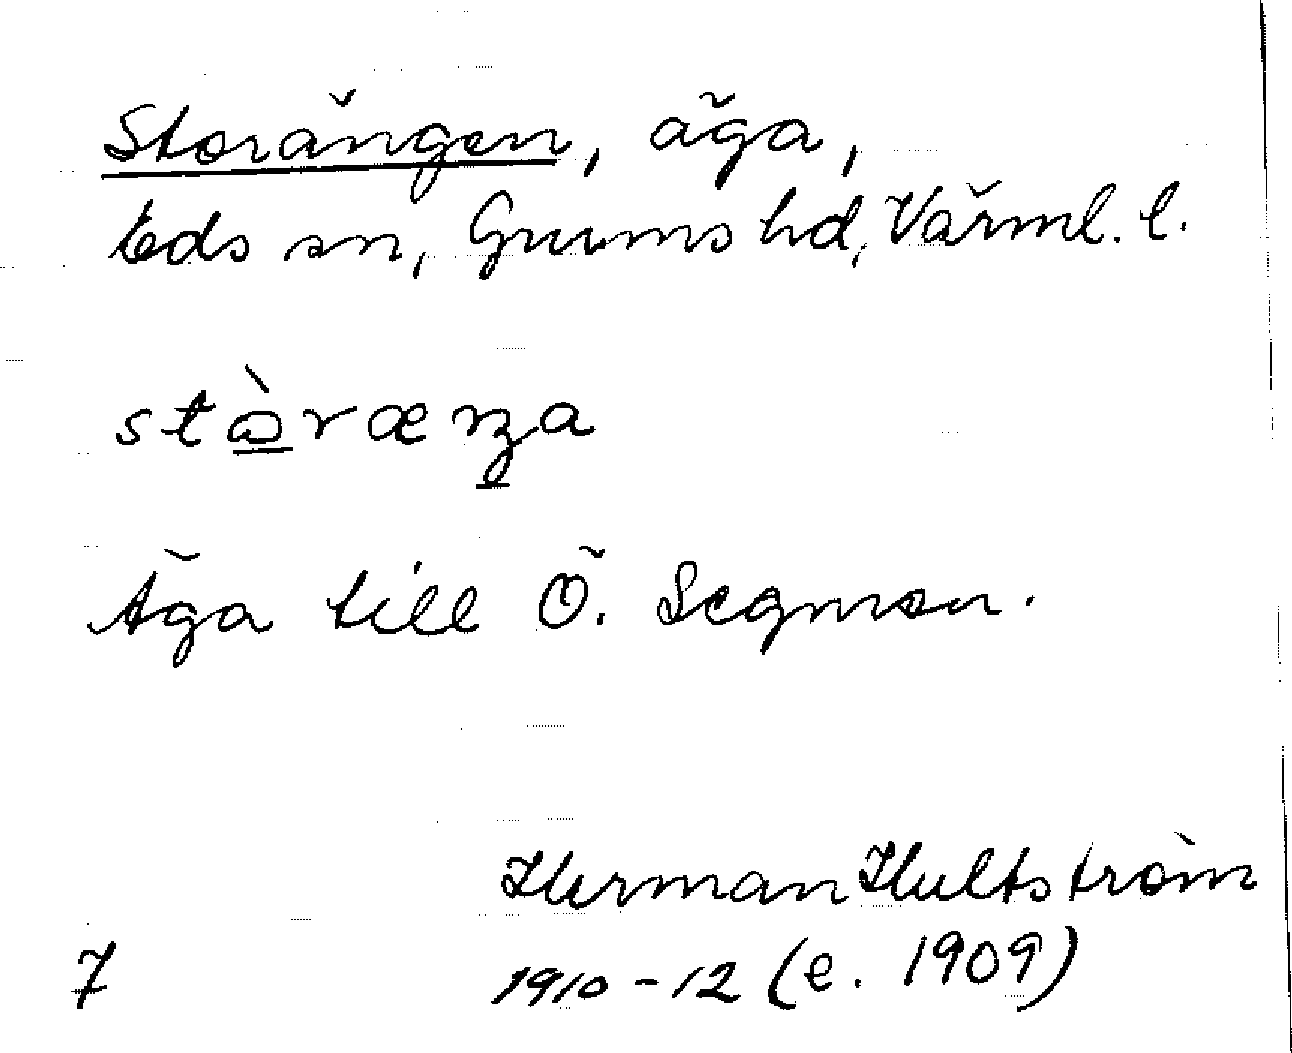 Storängen, äga,
Eds sn, Grums hd, Värml. l.
stàræŋa
Äga till Ö. Segmon.
Herman Hultström
1910-12 (e. 1909)
7